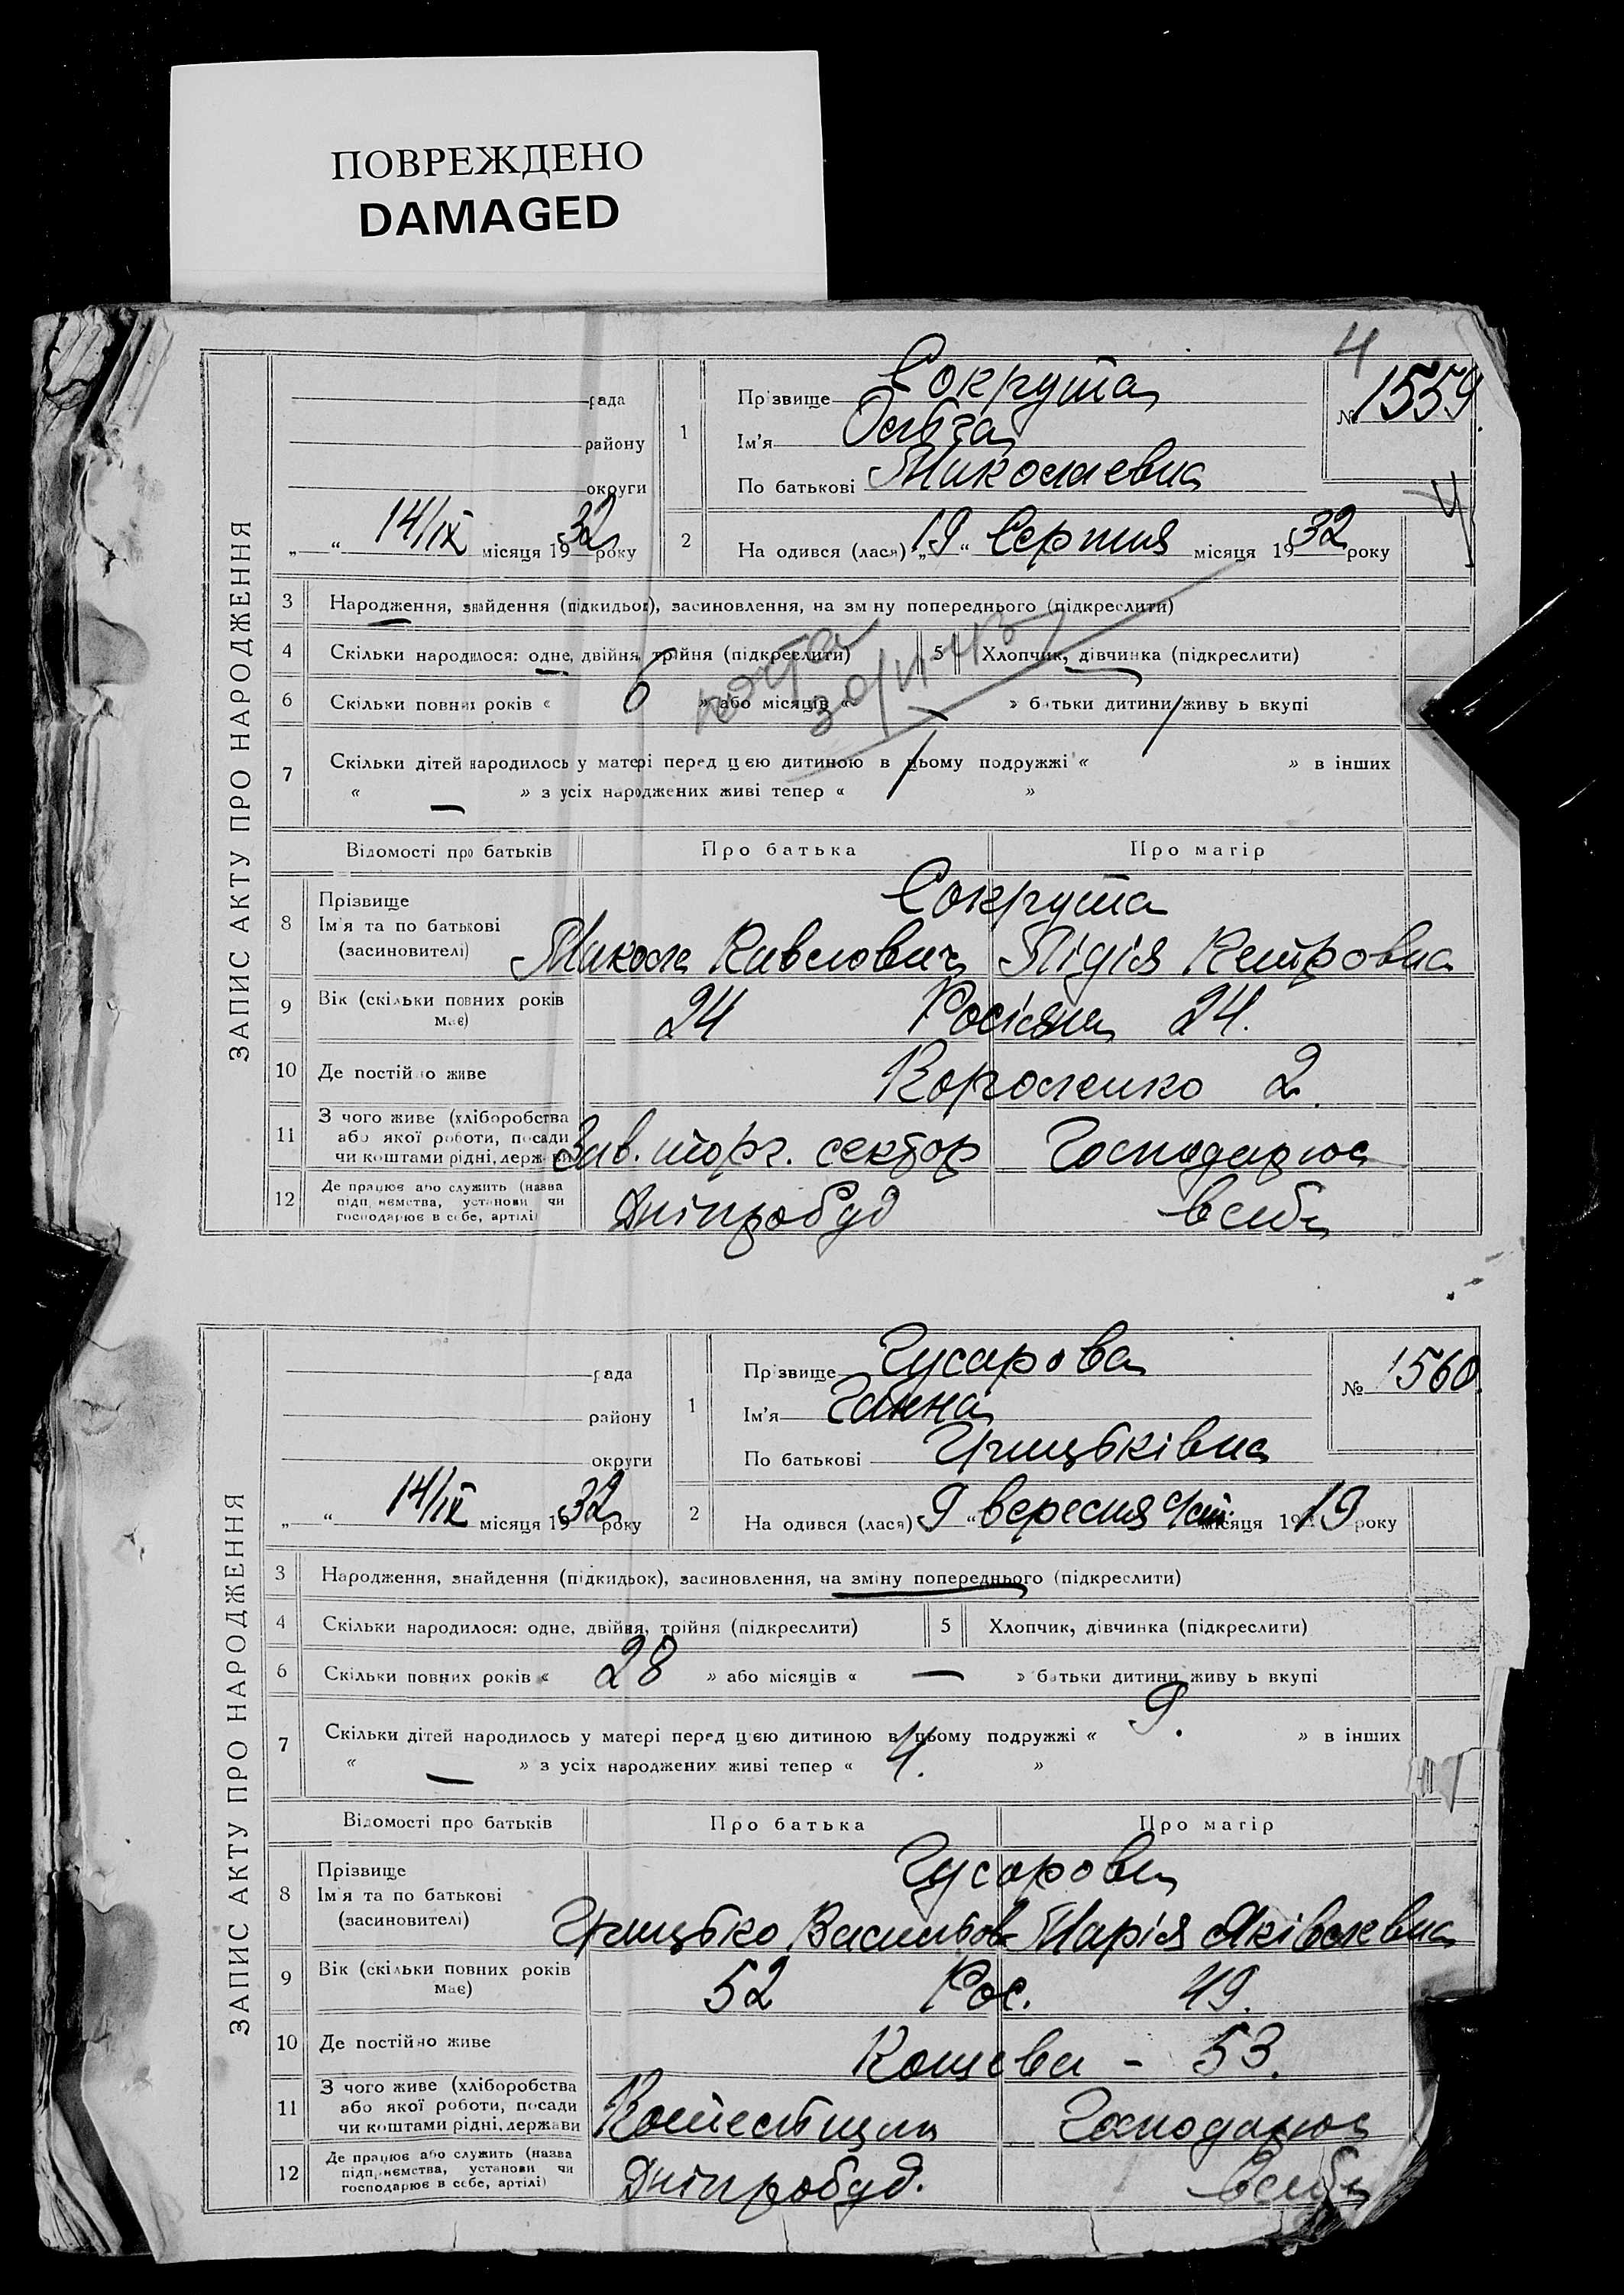 ПОВРЕЖДЕНО
DAMAGED
4
ЗАПИС АКТУ ПРО НАРОДЖЕННЯ
рада
району
округи
„ “ 14/IX місяця 1932 року
1
Прізвище Сокрута
Ім'я Ольга
По батькові Миколаевна
№ 1559.
2
Народився (лася) „19“ Серпня місяця 1932 року
3 Народження, знайдення (підкидьок), засиновлення, на зміну попереднього (підкреслити)
4 Скільки народилося: одне, двійня, трійня (підкреслити) 5 Хлопчик, дівчинка (підкреслити)
6 Скільки повних років « 6 » або місяців « — » батьки дитини живуть вкупі
30/VI-43
7 Скільки дітей народилось у матері перед цією дитиною в цьому подружжі « / » в інших
« — » з усіх народжених живі тепер « / »
Відомості про батьків Про батька Про матір
8 Прізвище
Ім'я та по батькові
(засиновителі)
Сокрута
Микола Павлович Лідія Петровна
9 Вік (скільки повних років має) 24 Росіяни 24.
10 Де постійно живе Короленко 2.
11 З чого живе (хліборобства
або якої роботи, посади
чи коштами рідні, держави
Зав. торг. сектор Господарює
12 Де працює або служить (назва
підприємства, установи чи
господарює в себе, артілі)
Дніпробуд в себе
ЗАПИС АКТУ ПРО НАРОДЖЕННЯ
рада
району
округи
„ “ 14/IX місяця 1932 року
1
Прізвище Гусарова
Ім'я Ганна
По батькові Грицьківна
№ 1560.
2
Народився (лася) 9 “ вересня с/ст. місяця 1919 року
3 Народження, знайдення (підкидьок), засиновлення, на зміну попереднього (підкреслити)
4 Скільки народилося: одне, двійня, трійня (підкреслити) 5 Хлопчик, дівчинка (підкреслити)
6 Скільки повних років « 28 » або місяців « — » батьки дитини живуть вкупі
7 Скільки дітей народилось у матері перед цією дитиною в цьому подружжі « 9. » в інших
« — » з усіх народжених живі тепер « 4. »
Відомості про батьків Про батька Про матір
8 Прізвище
Ім'я та по батькові
(засиновителі)
Гусарови
Грицько Васильов Марія Яківлевна
9 Вік (скільки повних років має) 52 Рос. 49.
10 Де постійно живе Кошева - 53.
11 З чого живе (хліборобства
або якої роботи, посади
чи коштами рідні, держави
Господарює
12 Де працює або служить (назва
підприємства, установи чи
господарює в себе, артілі)
Дніпробуд. в себе